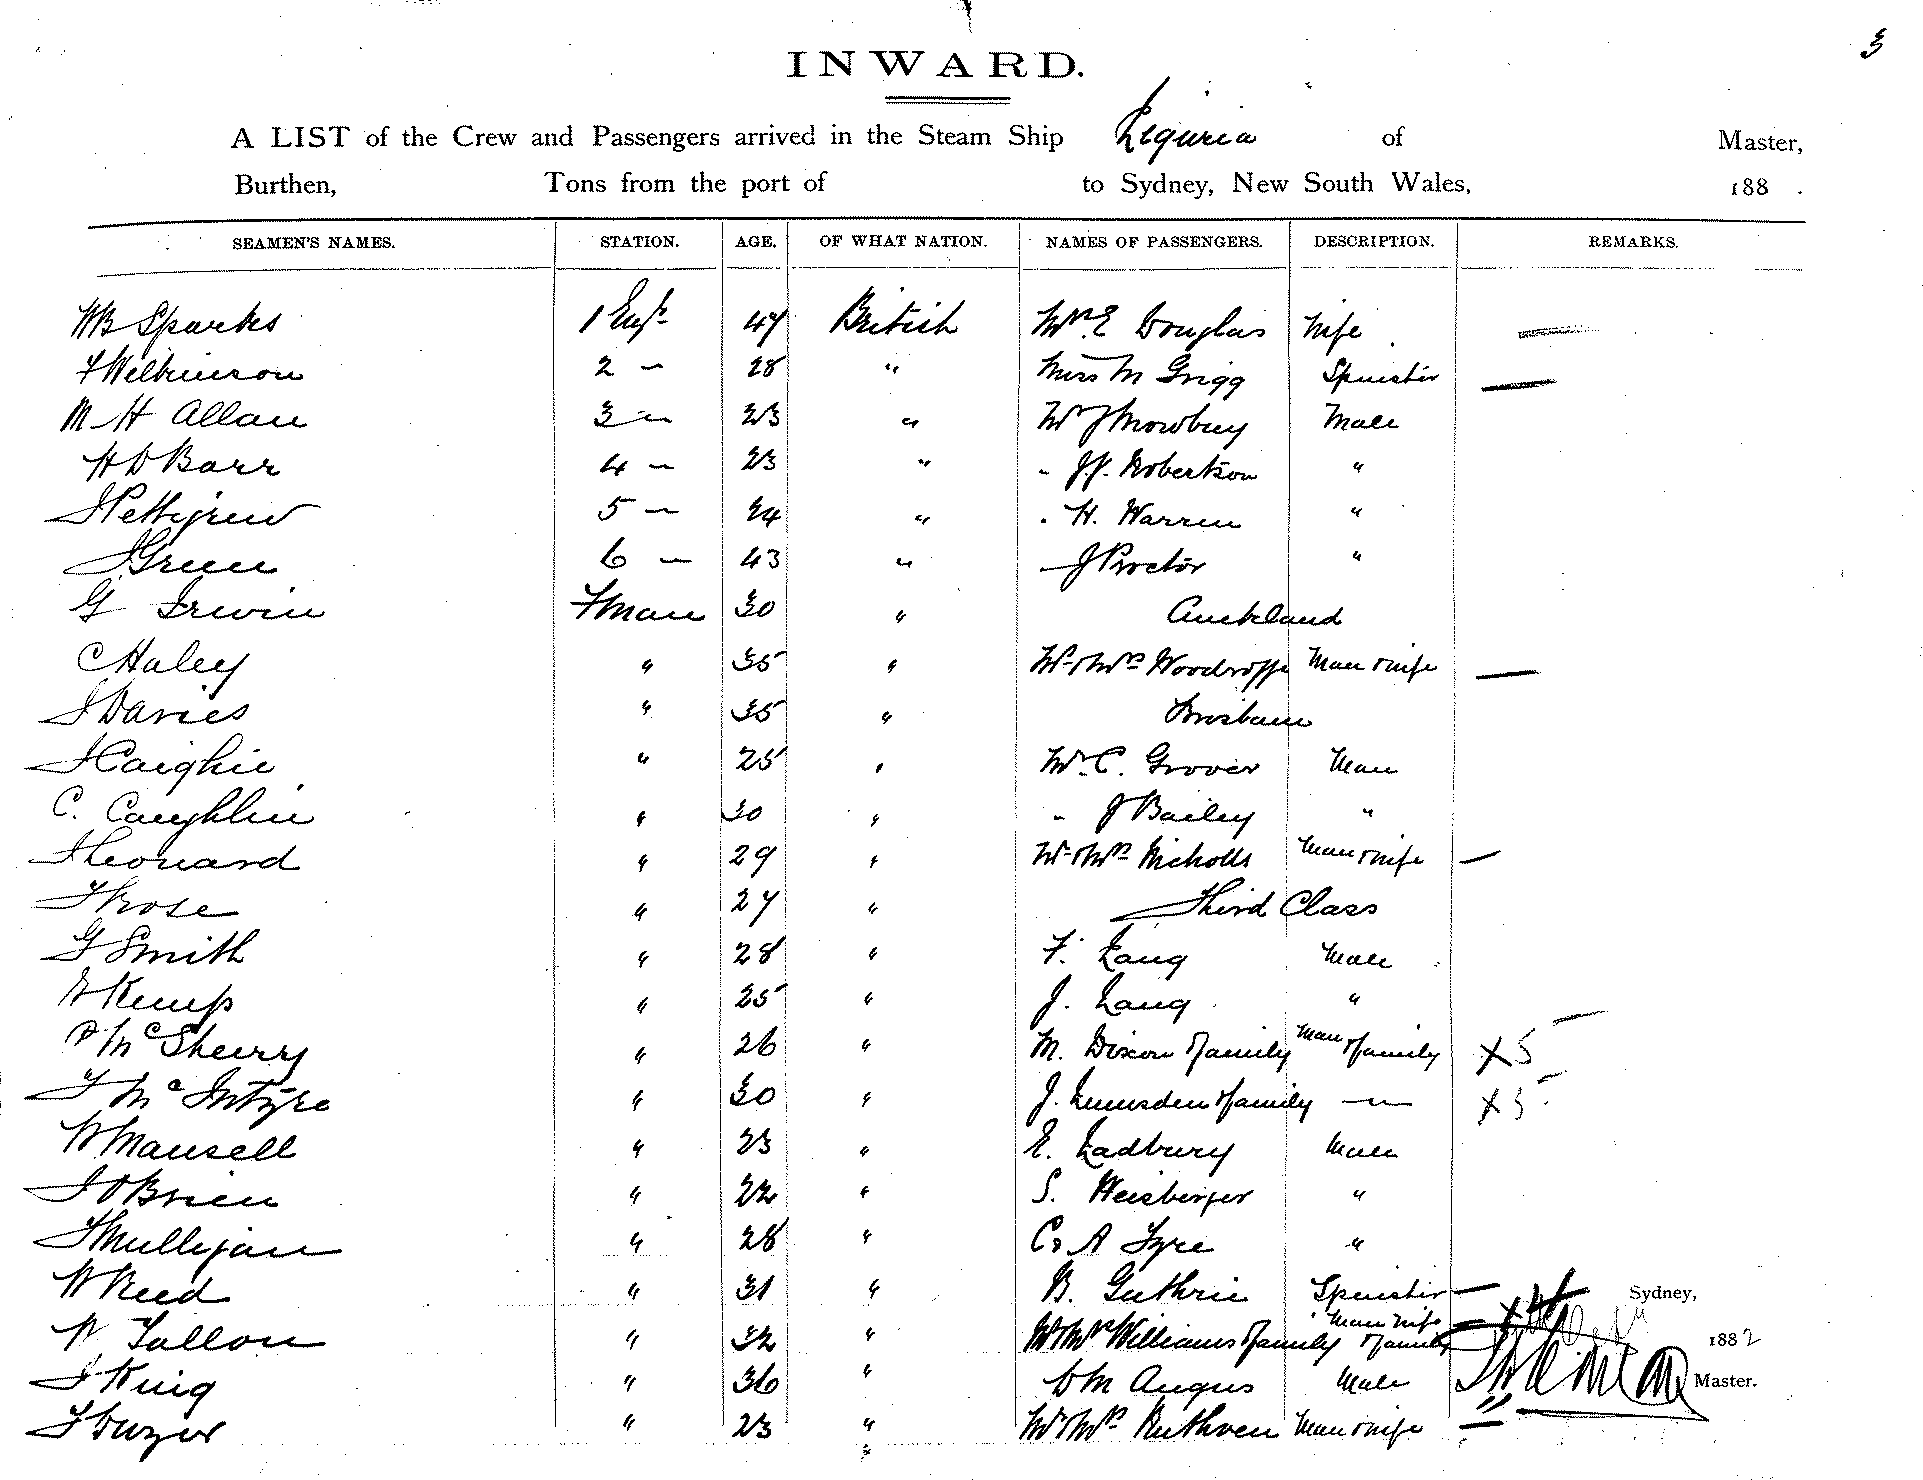 3
INWARD.
A LIST of the Crew and Passengers arrived in the Steam Ship Liguria of Master,
Burthen, Tons from the port of to Sydney, New South Wales, 188 .
SEAMEN'S NAMES. STATION. AGE. OF WHAT NATION. NAMES OF PASSENGERS. DESCRIPTION. REMARKS.
WB Sparks 1 Engr 47 British Mrs E Douglas Wife —
F Wilkinson 2 — 28 " Miss M Grigg Spinster —
M H Allan 3 — 23 " Mr J Mowbray Male
H D Barr 4 — 23 " " J.J. Robertson "
J Pettigrew 5 — 24 " " H. Warren "
J Green 6 — 43 " J Proctor "
G Irwin Fman 30 " Auckland
C Haley " 35 " Mr & Mrs Woodroffe Man & wife —
J Davies " 35 " Brisbane
J Caighie " 25 " Mr C. Grover Man
C. Caughlin " 30 " " J Bailey "
J Leonard " 29 " Mr & Mrs Nicholls Man & wife —
T Rose " 27 " Third Class
G Smith " 28 " F. Lang Male
W Kemp " 25 " J. Lang "
P McSherry " 26 " M. Dixon & family Man & family X5
T McIntyre " 30 " J. Lumsden & family — X5
W Mansell " 23 " E. Ladbury Male
J O'Brien " 22 " S. Weisberger "
T Mulligan " 28 " C & A Tyre "
W Reed " 31 " B. Guthrie Spinster — Sydney,
P Tallon " 32 " Mr Mrs Williams & family Man Wife & family — 1882
J King " 36 " D M Angus Male Master.
T Dwyer " 23 " Mr & Mrs Ruthven Man & wife —